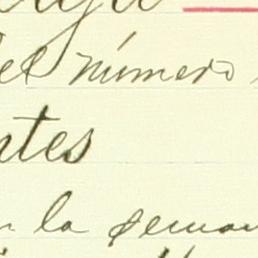 el número
ntes
n la seman